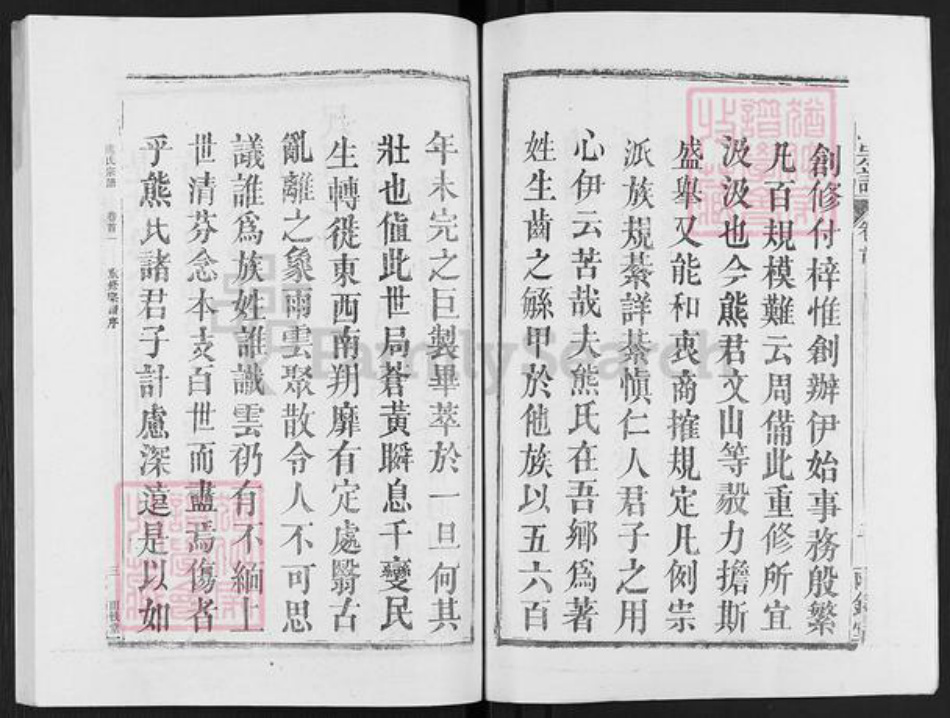 創修付梓惟創辦伊始事務殷繁
凡百規模難云周備此重修所宜
汲汲也今熊君文山等毅力擔斯
盛舉又能和衷商搉規定凡例崇
派族規綦詳綦愼仁人君子之用
心伊云苦哉夫熊氏在吾鄉爲著
姓生齒之繇甲於他族以五六百
年未完之巨製畢萃於一旦何其
壯也值此世局蒼黃瞬息千變民
生轉徙東西南朔靡有定處翳古
亂離之象雨雲聚散令人不可思
議誰爲族姓誰識雲礽有不緬上
世清芬念本支百世而盡焉傷者
乎熊氏諸君子計慮深遠是以如
熊氏宗譜 卷首一 重修宗譜序 三
FamilySearch